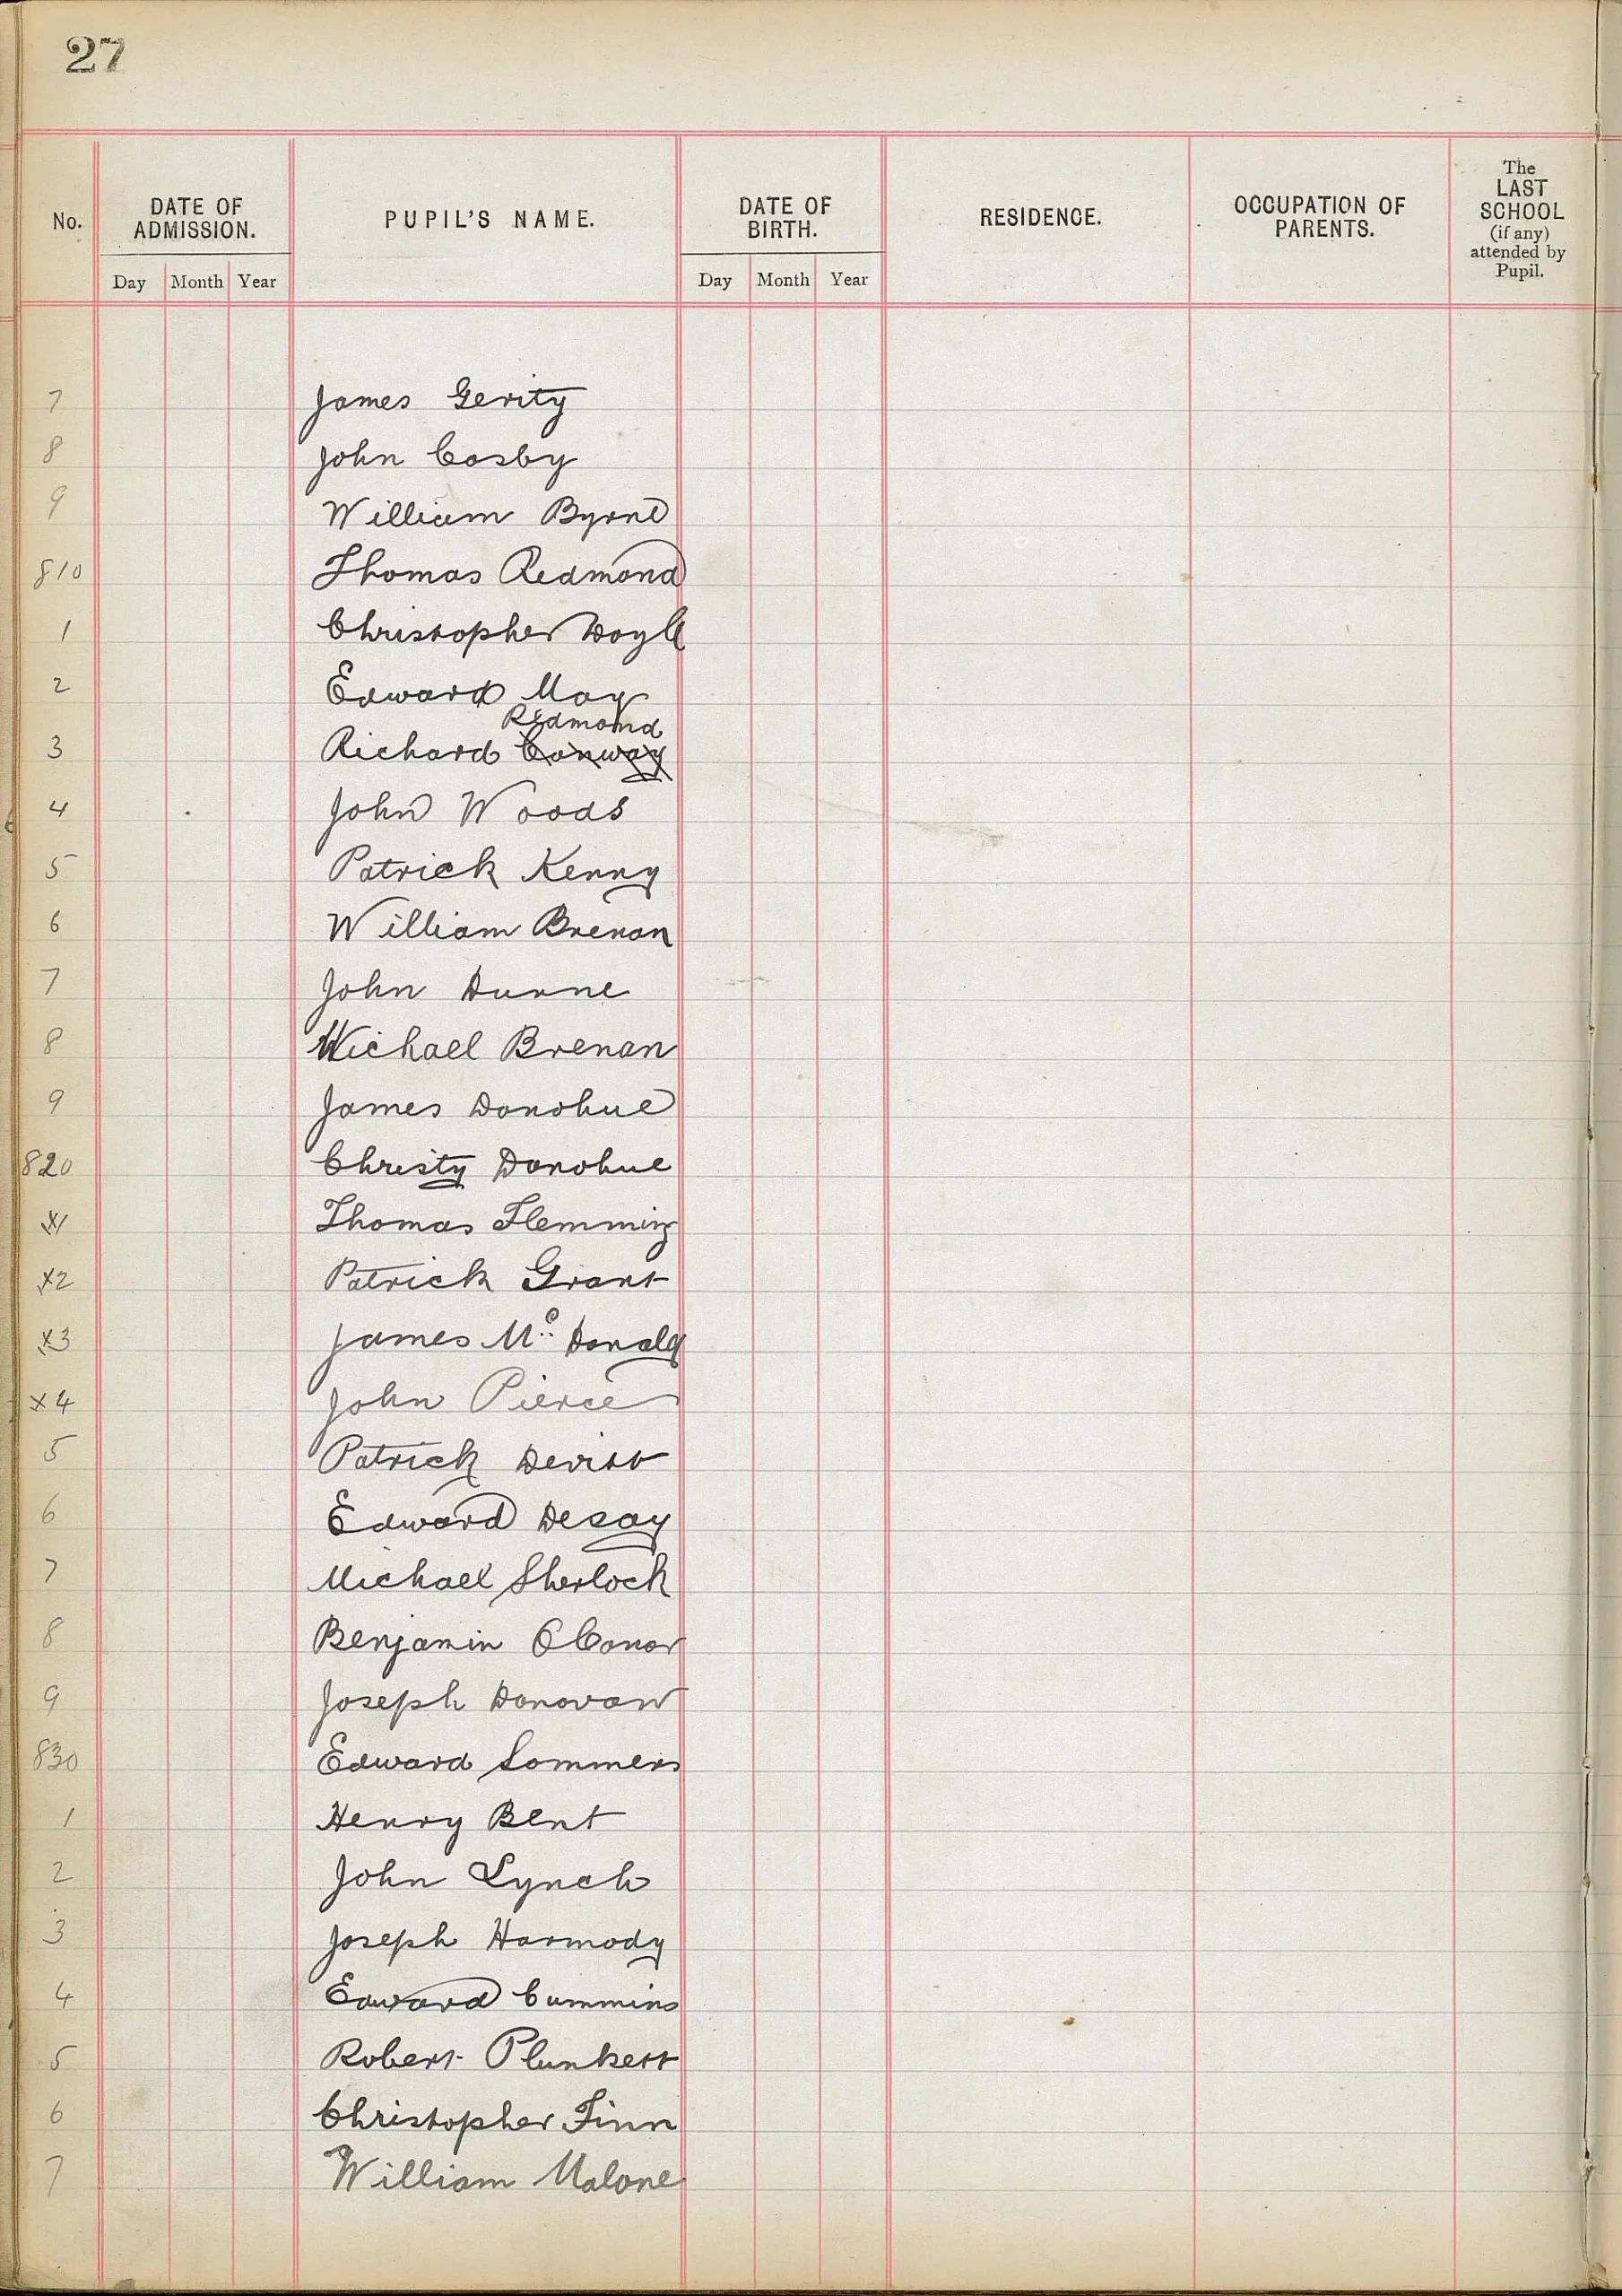 27
No.
DATE OF ADMISSION.
PUPIL'S NAME.
DATE OF BIRTH.
RESIDENCE.
OCCUPATION OF PARENTS.
The LAST SCHOOL (if any) attended by Pupil.
Day Month Year Day Month Year
7 James Gerity
8 John Cosby
9 William Byrne
810 Thomas Redmond
1 Christopher Doyle
2 Edward May
Redmond
3 Richard Conway
4 John Woods
5 Patrick Kenny
6 William Brenan
7 John Dunne
8 Michael Brenan
9 James Donohue
820 Christy Donohue
x1 Thomas Flemming
x2 Patrick Grant
x3 James Mc Donald
x4 John Pierce
5 Patrick Devitt
6 Edward Desay
7 Michael Sherlock
8 Benjamin O Conor
9 Joseph Donovan
830 Edward Sommers
1 Henry Bent
2 John Lynch
3 Joseph Harmody
4 Edward Cummins
5 Robert Plunkett
6 Christopher Finn
7 William Malone